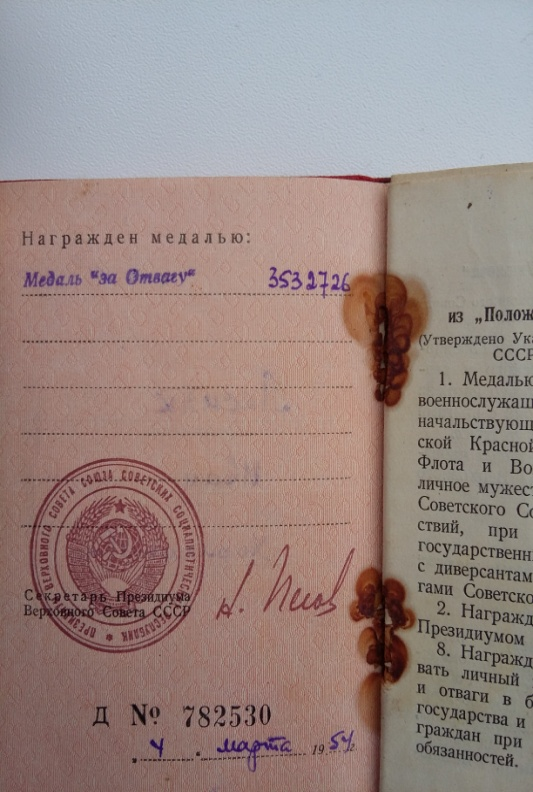 Награжден медалью:
Медаль "за Отвагу" 3532726
ПРЕЗИДИУМ ВЕРХОВНОГО СОВЕТА СОЮЗА СОВЕТСКИХ СОЦИАЛИСТИЧЕСКИХ РЕСПУБЛИК
Секретарь Президиума
Верховного Совета СССР
Д № 782530
"4" марта 1954
из „Полож
(Утверждено Ука
СССР
1. Медалью
военнослужащ
начальствующ
ской Красной
Флота и Во
личное мужест
Советского Со
ствий, при
государственн
с диверсантам
гами Советско
2. Награжд
Президиумом
8. Награжд
вать личный
и отваги в б
государства и
граждан при
обязанностей.